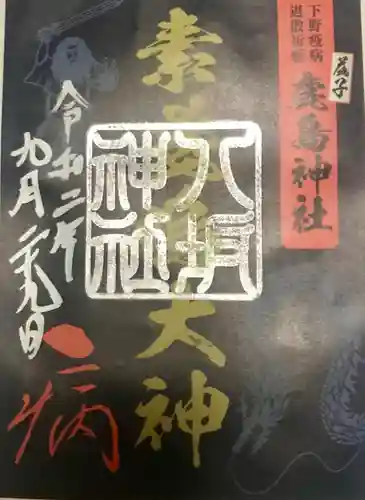 下野疫病
退散祈願
益子
鹿島神社
八坂
神社
大神
令和二年
九月二九日
病